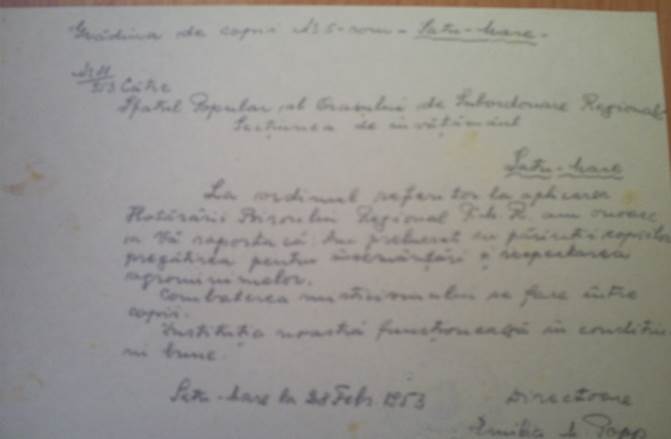 Grădina de copii No 5-rom - Satu-Mare -
No 11
953 Către
Sfatul Popular al Orasului de Subordonare Regională
Secțiunea de învățământ
Satu-Mare
La ordinul referitor la aplicarea
Hotărârii Biroului Regional P.M.R. am onoare
a Vă raporta că: Am prelucrat cu părinții copiilor
pregătirea pentru însămânțări și respectarea
agrominimelor.
Combaterea misticismului se face între
copii.
Instituția noastră funcționează în condițiu
ni bune.
Satu-Mare la 28 Febr 1953
Directoare
Emilia Papp